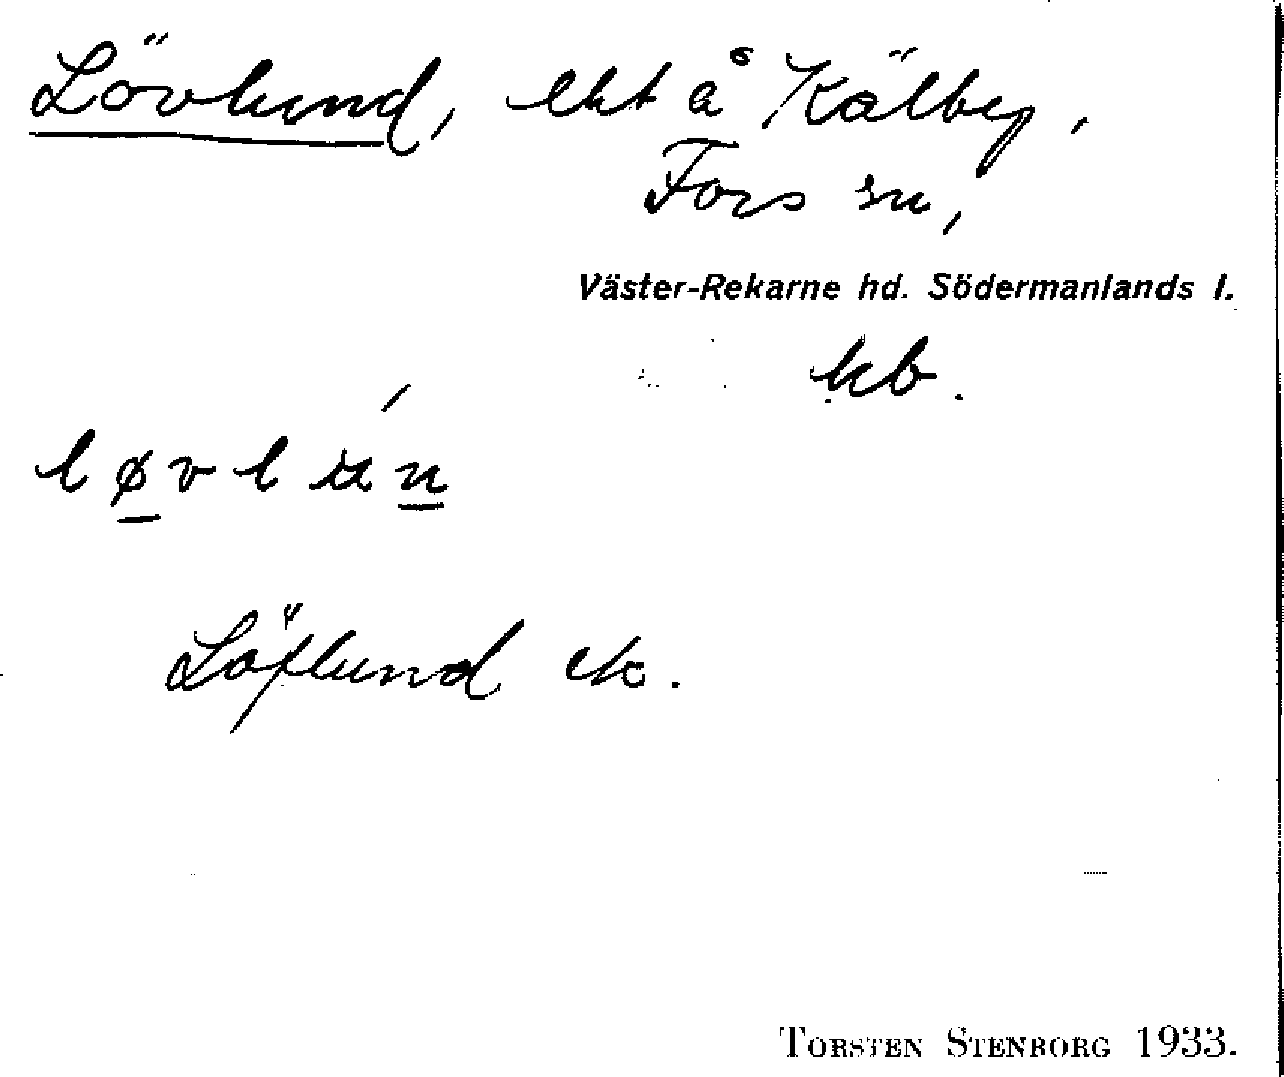 Lövlund, lht å Kälby,
Fors sn,
Väster-Rekarne hd. Södermanlands l.
kb.
Löflund ek.
TORSTEN STENBORG 1933.